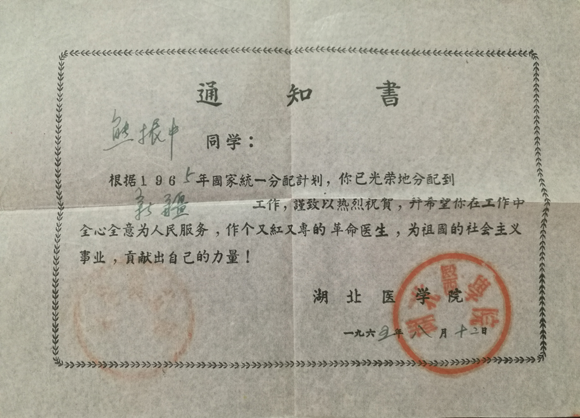 通知書
熊振中 同学：
根据1965年國家統一分配計划，你已光荣地分配到
新疆 工作，謹致以热烈祝賀，幷希望你在工作中
全心全意为人民服务，作个又紅又専的革命医生，为祖國的社会主义
事业，貢献出自己的力量！
湖北医学院
一九六五年八月十二日
湖北醫學院